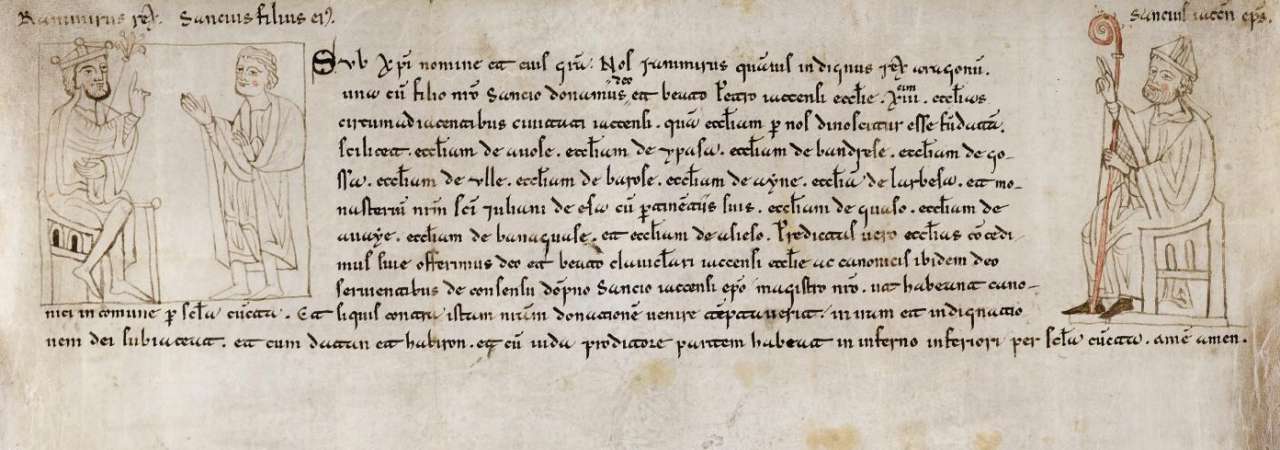 Ranimirus rex. Sancius filius ei9. Sancius iaccen eps.
Sub Xpi nomine et eius gra. Nos ranimirus quamuis indignus rex aragonu.
una cu filio nro Sancio donamus deo et beato Petro iaccensi ecclie. Xcim iii. ecclias
circumadiacentibus ciuitati iaccensi. qua eccliam p nos dinoscitur esse fundata.
scilicet. eccliam de auose. eccliam de ypasa. eccliam de bandrese. eccliam de go-
ssa. eccliam de ulle. eccliam de barose. eccliam de ayne. ecclia de larbesa. et mo-
nasteriu nrm sci Iuliani de esa cu ptinetiis suis. eccliam de guaso. eccliam de
auaye. eccliam de banaguase. et eccliam de asieso. Predictas uero ecclias cocedi-
mus siue offerimus deo et beato clauiclari iaccensi ecclie ac canonicis ibidem deo
seruientibus de consensu dopno Sancio iaccensi epo magistro nro. ut habeant cano-
nici in comune p scla cucta. Et siquis contra istam nram donatione uenire teptauerit. in iram et indignatio
nem dei subiaceat. et cum datan et habiron. et cu iuda proditore partem habeat in inferno inferiori per scla cucta. ame amen.